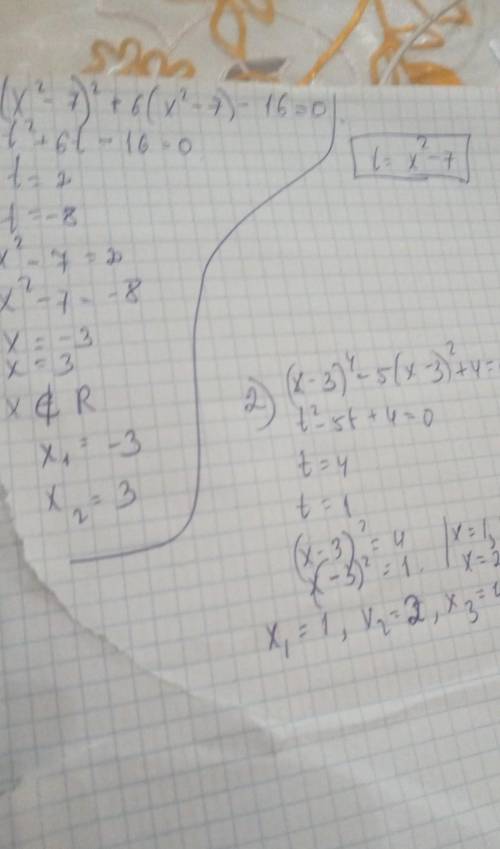 (x² - 7)² + 6(x² - 7) - 16 = 0
t² + 6t - 16 = 0
t = 2
t = -8
x² - 7 = 2
x² - 7 = -8
x = -3
x = 3
x ∉ R
x₁ = -3
x₂ = 3
t = x² - 7
2) (x - 3)⁴ - 5(x - 3)² + 4 =
t² - 5t + 4 = 0
t = 4
t = 1
(x - 3)² = 4
(x - 3)² = 1
x = 1,
x = 2
x₁ = 1, x₂ = 2, x₃ =